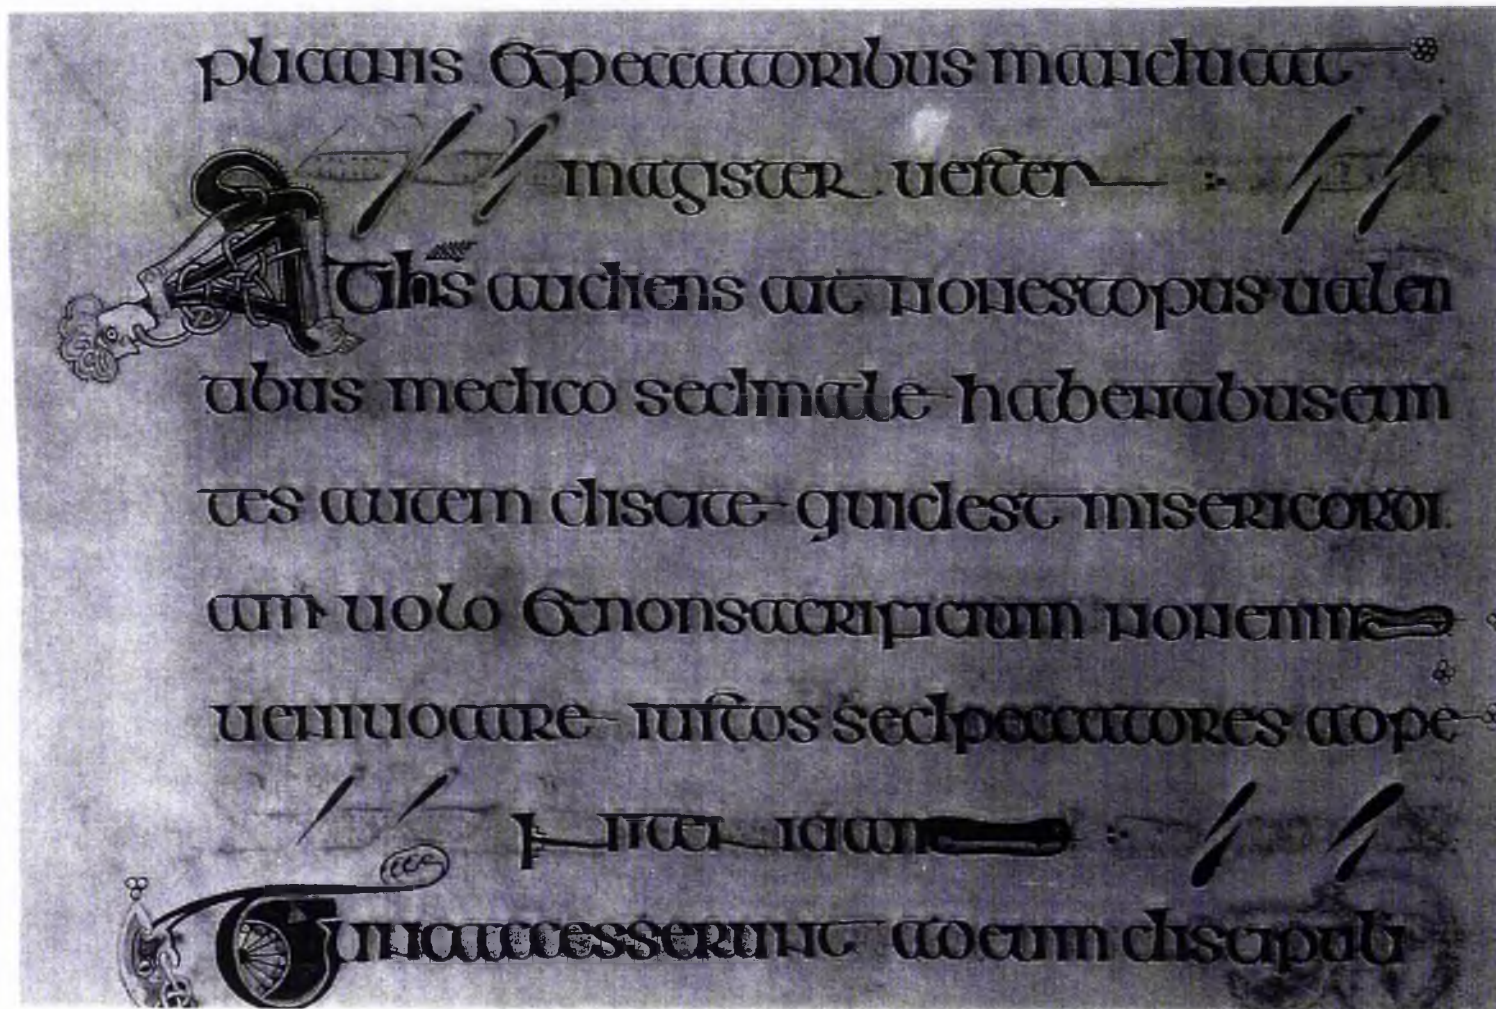 plicanis &peccatoribus manducat
magister uester
Atihs audiens ait nonestopus ualen
tibus medico sedmale habentibuseun
tes autem discite quidest misericordi
am uolo &nonsacrificium nonenim
ueniuocare iustos sedpeccatores adpe
nitentiam
Tuncaccesserunt adeum discipuli